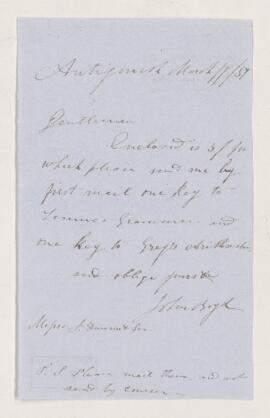 Antigonish March 17/57
Gentlemen
Enclosed is 3/ for
which please send me by
first mail one Key to
Grammar and
one Key to Greg's
and oblige yours
John
Messrs J. Dawson & Son
P.S. Please mail them and not
send by courier